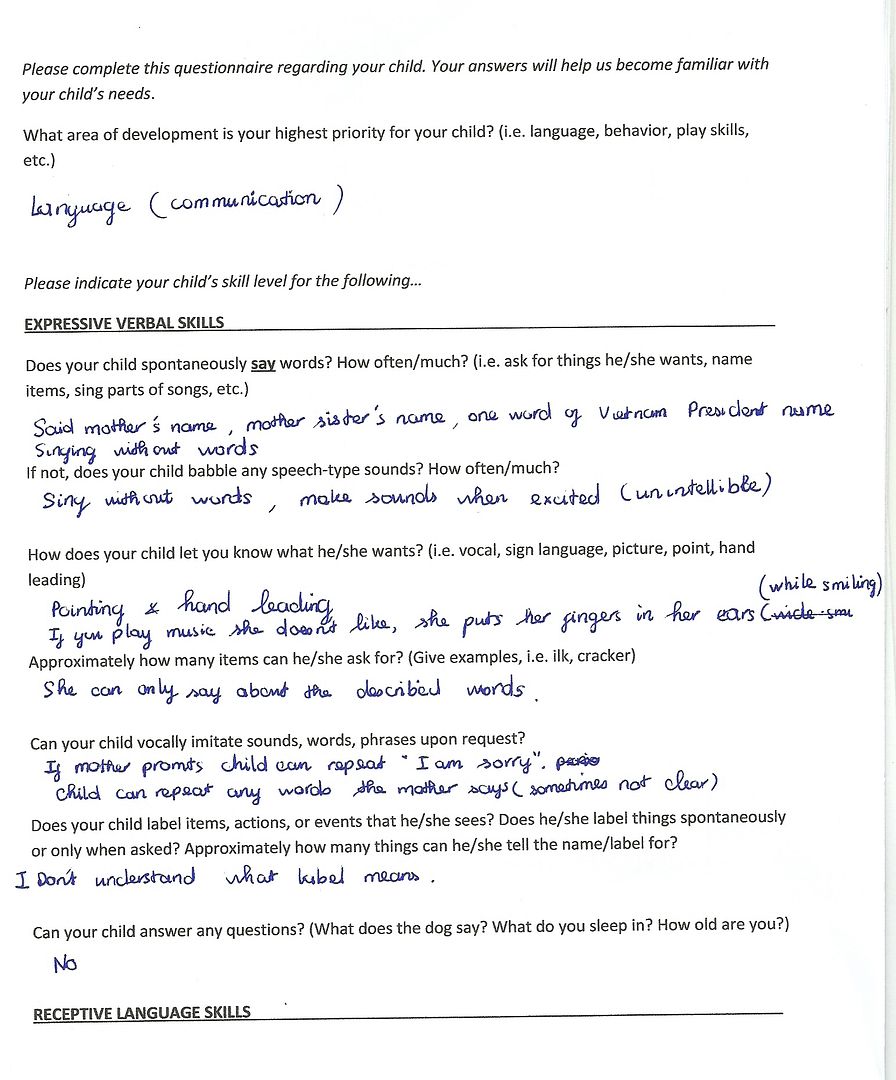 Please complete this questionnaire regarding your child. Your answers will help us become familiar with
your child's needs.
What area of development is your highest priority for your child? (i.e. language, behavior, play skills,
etc.)
Language (communication)
Please indicate your child's skill level for the following...
EXPRESSIVE VERBAL SKILLS
Does your child spontaneously say words? How often/much? (i.e. ask for things he/she wants, name
items, sing parts of songs, etc.)
Said mother's name, mother sister's name, one word of Vietnam President name
Singing without words
If not, does your child babble any speech-type sounds? How often/much?
Sing without words, make sounds when excited (unintellibble)
How does your child let you know what he/she wants? (i.e. vocal, sign language, picture, point, hand
leading)
(while smiling)
Pointing & hand leading
If you play music she doesn't like, she puts her fingers in her ears
Approximately how many items can he/she ask for? (Give examples, i.e. ilk, cracker)
She can only say about the described words.
Can your child vocally imitate sounds, words, phrases upon request?
If mother promts child can repeat "I am sorry".
Child can repeat any words the mother says (sometimes not clear)
Does your child label items, actions, or events that he/she sees? Does he/she label things spontaneously
or only when asked? Approximately how many things can he/she tell the name/label for?
I Don't understand what label means.
Can your child answer any questions? (What does the dog say? What do you sleep in? How old are you?)
No
RECEPTIVE LANGUAGE SKILLS